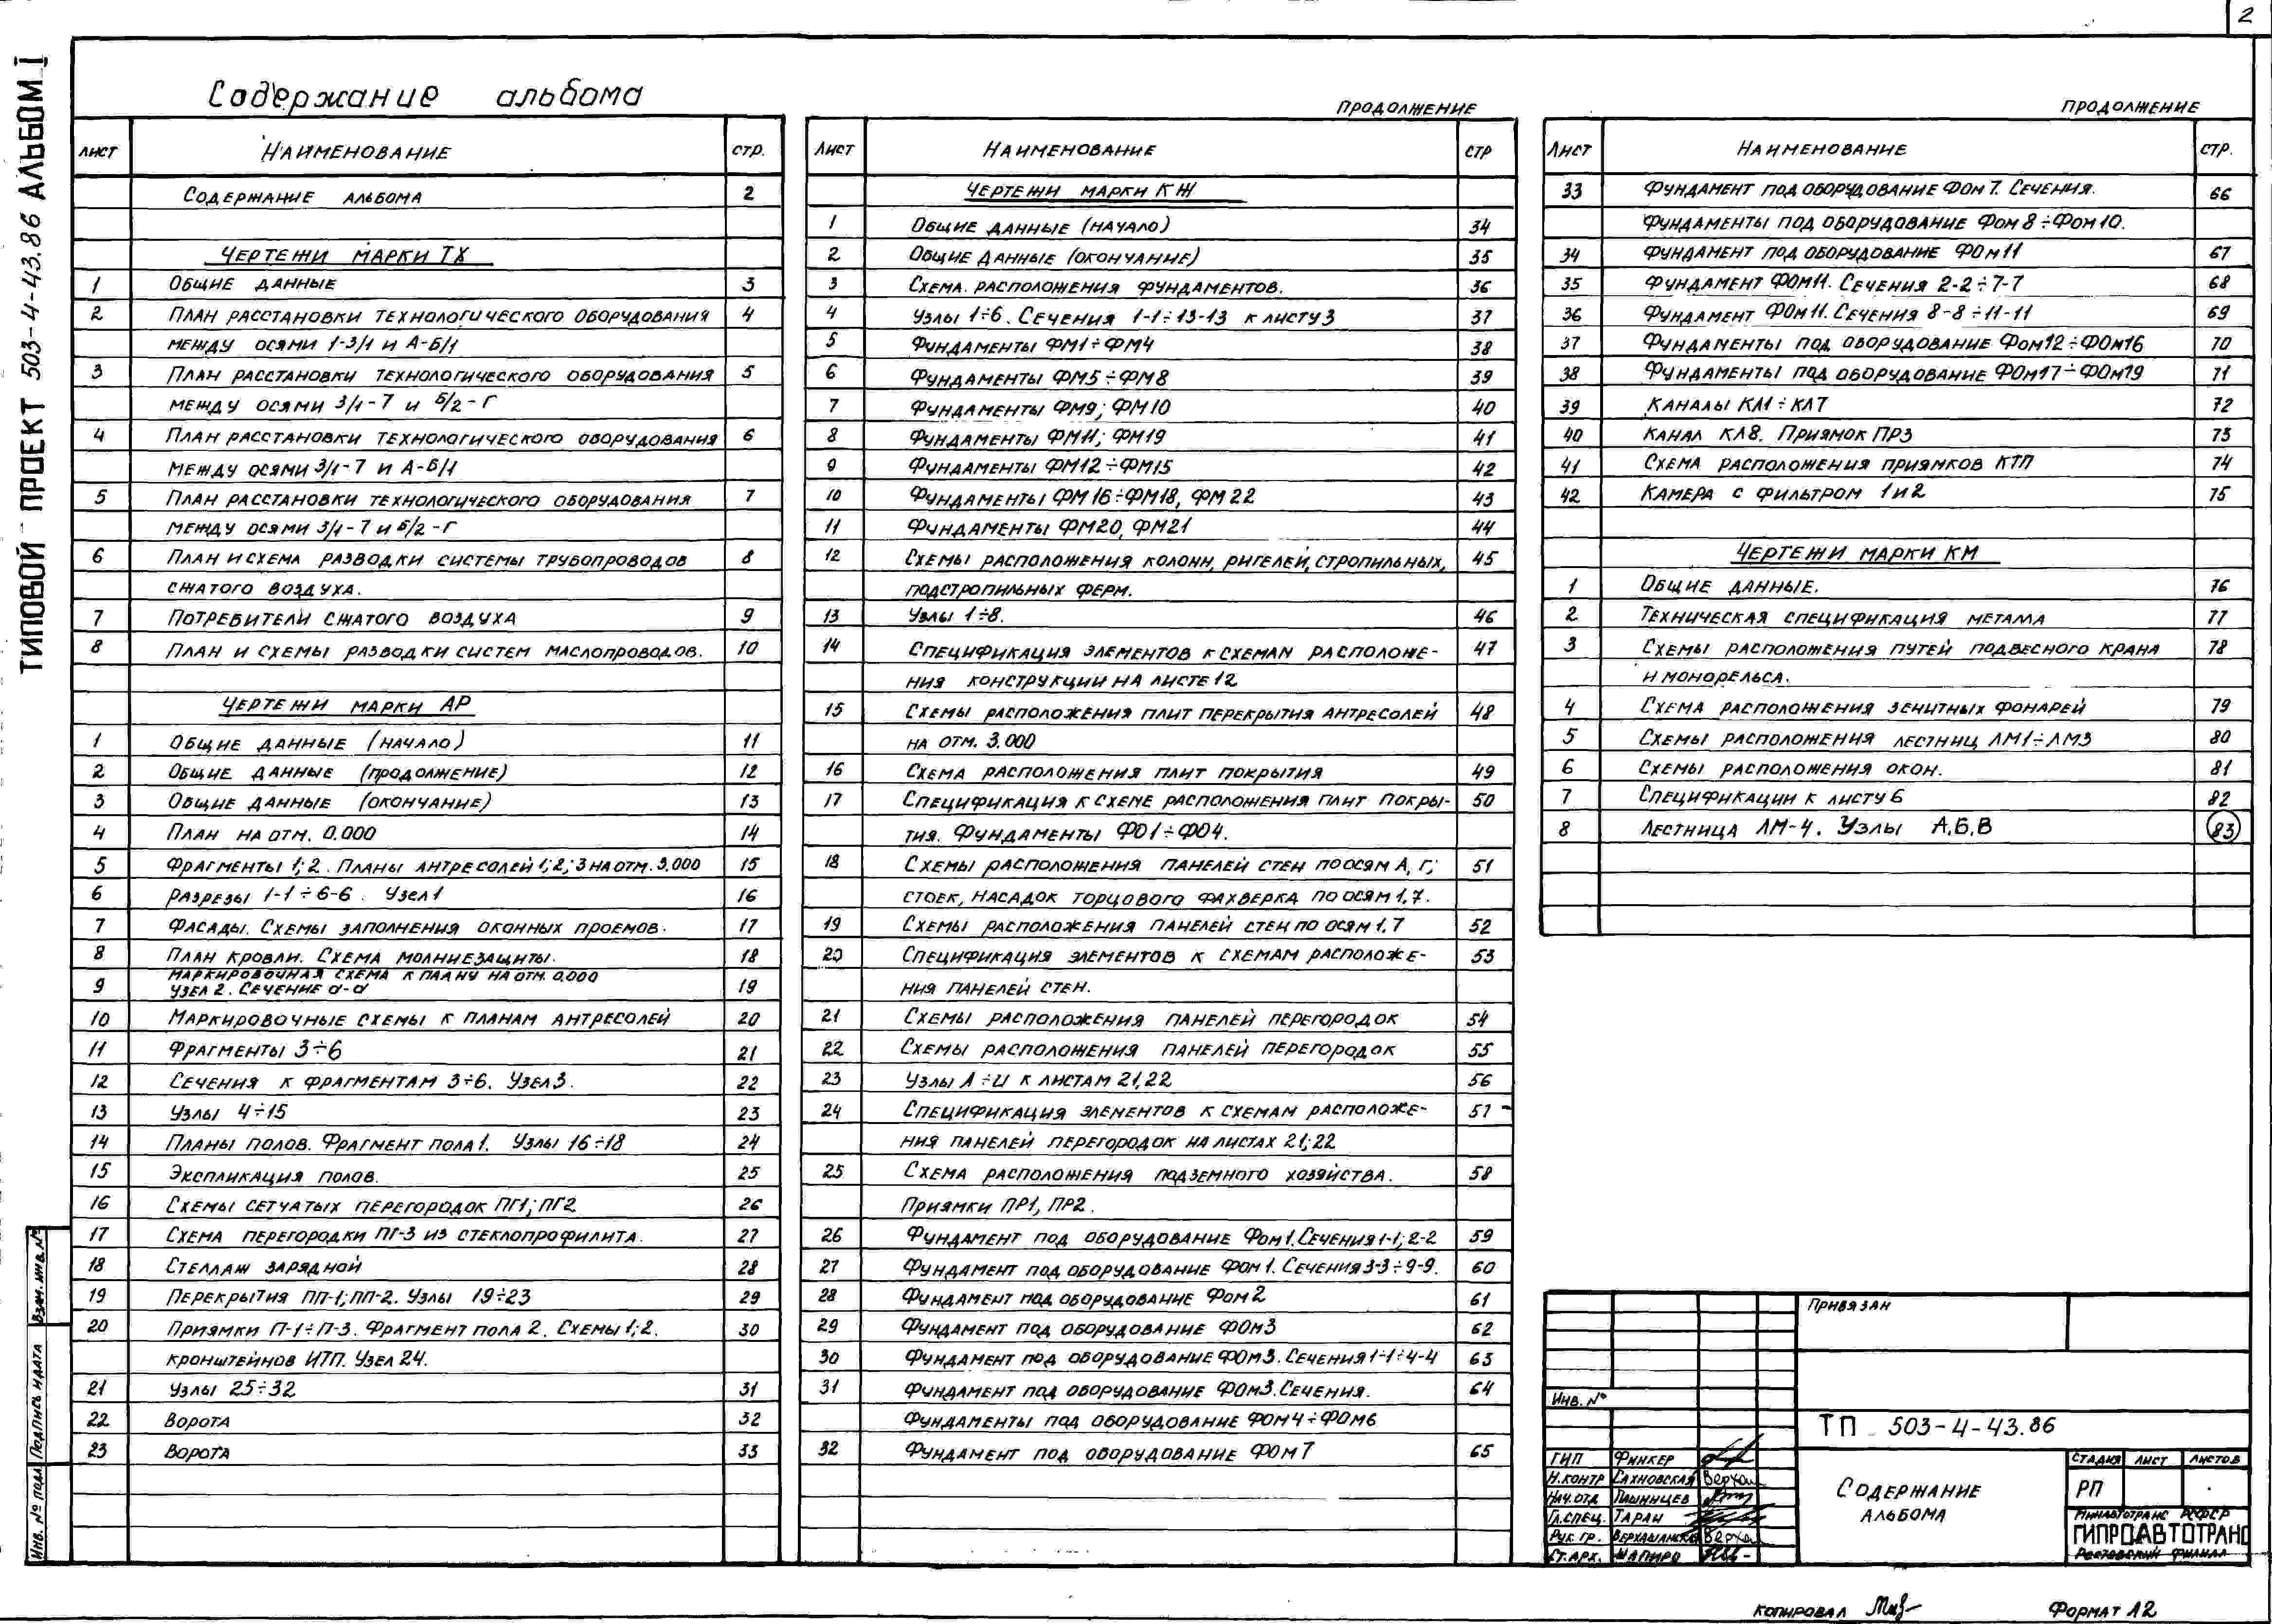 2
ТИПОВОЙ ПРОЕКТ 503-4-43.86 АЛЬБОМ I
Содержание альбома
ЛИСТ НАИМЕНОВАНИЕ СТР.
СОДЕРЖАНИЕ АЛЬБОМА 2
ЧЕРТЕЖИ МАРКИ ТХ
1 ОБЩИЕ ДАННЫЕ 3
2 ПЛАН РАССТАНОВКИ ТЕХНОЛОГИЧЕСКОГО ОБОРУДОВАНИЯ 4
МЕЖДУ ОСЯМИ 1-3/1 И А-Б/1
3 ПЛАН РАССТАНОВКИ ТЕХНОЛОГИЧЕСКОГО ОБОРУДОВАНИЯ 5
МЕЖДУ ОСЯМИ 3/1-7 И Б/2-Г
4 ПЛАН РАССТАНОВКИ ТЕХНОЛОГИЧЕСКОГО ОБОРУДОВАНИЯ 6
МЕЖДУ ОСЯМИ 3/1-7 И А-Б/1
5 ПЛАН РАССТАНОВКИ ТЕХНОЛОГИЧЕСКОГО ОБОРУДОВАНИЯ 7
МЕЖДУ ОСЯМИ 3/1-7 И Б/2-Г
6 ПЛАН И СХЕМА РАЗВОДКИ СИСТЕМЫ ТРУБОПРОВОДОВ 8
СЖАТОГО ВОЗДУХА.
7 ПОТРЕБИТЕЛИ СЖАТОГО ВОЗДУХА 9
8 ПЛАН И СХЕМЫ РАЗВОДКИ СИСТЕМ МАСЛОПРОВОДОВ. 10
ЧЕРТЕЖИ МАРКИ АР
1 ОБЩИЕ ДАННЫЕ (НАЧАЛО) 11
2 ОБЩИЕ ДАННЫЕ (ПРОДОЛЖЕНИЕ) 12
3 ОБЩИЕ ДАННЫЕ (ОКОНЧАНИЕ) 13
4 ПЛАН НА ОТМ. 0.000 14
5 ФРАГМЕНТЫ 1; 2. ПЛАНЫ АНТРЕСОЛЕЙ 1; 2; 3 НА ОТМ. 3.000 15
6 РАЗРЕЗЫ 1-1÷6-6. УЗЕЛ 1 16
7 ФАСАДЫ. СХЕМЫ ЗАПОЛНЕНИЯ ОКОННЫХ ПРОЕМОВ. 17
8 ПЛАН КРОВЛИ. СХЕМА МОЛНИЕЗАЩИТЫ. 18
9 МАРКИРОВОЧНАЯ СХЕМА К ПЛАНУ НА ОТМ. 0.000
УЗЕЛ 2. СЕЧЕНИЕ а-а 19
10 МАРКИРОВОЧНЫЕ СХЕМЫ К ПЛАНАМ АНТРЕСОЛЕЙ 20
11 ФРАГМЕНТЫ 3÷6 21
12 СЕЧЕНИЯ К ФРАГМЕНТАМ 3÷6. УЗЕЛ 3. 22
13 УЗЛЫ 4÷15 23
14 ПЛАНЫ ПОЛОВ. ФРАГМЕНТ ПОЛА 1. УЗЛЫ 16÷18 24
15 ЭКСПЛИКАЦИЯ ПОЛОВ. 25
16 СХЕМЫ СЕТЧАТЫХ ПЕРЕГОРОДОК ПГ1; ПГ2 26
17 СХЕМА ПЕРЕГОРОДКИ ПГ-3 ИЗ СТЕКЛОПРОФИЛИТА. 27
18 СТЕЛЛАЖ ЗАРЯДНОЙ 28
19 ПЕРЕКРЫТИЯ ПП-1; ПП-2. УЗЛЫ 19÷23 29
20 ПРИЯМКИ П-1÷П-3. ФРАГМЕНТ ПОЛА 2. СХЕМЫ 1; 2. 30
КРОНШТЕЙНОВ ИТП. УЗЕЛ 24.
21 УЗЛЫ 25÷32 31
22 ВОРОТА 32
23 ВОРОТА 33
ПРОДОЛЖЕНИЕ
ЛИСТ НАИМЕНОВАНИЕ СТР
ЧЕРТЕЖИ МАРКИ КЖ
1 ОБЩИЕ ДАННЫЕ (НАЧАЛО) 34
2 ОБЩИЕ ДАННЫЕ (ОКОНЧАНИЕ) 35
3 СХЕМА. РАСПОЛОЖЕНИЯ ФУНДАМЕНТОВ. 36
4 УЗЛЫ 1÷6. СЕЧЕНИЯ 1-1÷13-13 К ЛИСТУ 3 37
5 ФУНДАМЕНТЫ ФМ1÷ФМ4 38
6 ФУНДАМЕНТЫ ФМ5÷ФМ8 39
7 ФУНДАМЕНТЫ ФМ9; ФМ10 40
8 ФУНДАМЕНТЫ ФМ11; ФМ19 41
9 ФУНДАМЕНТЫ ФМ12÷ФМ15 42
10 ФУНДАМЕНТЫ ФМ16÷ФМ18, ФМ22 43
11 ФУНДАМЕНТЫ ФМ20, ФМ21 44
12 СХЕМЫ РАСПОЛОЖЕНИЯ КОЛОНН, РИГЕЛЕЙ, СТРОПИЛЬНЫХ, 45
ПОДСТРОПИЛЬНЫХ ФЕРМ.
13 УЗЛЫ 1÷8. 46
14 СПЕЦИФИКАЦИЯ ЭЛЕМЕНТОВ К СХЕМАМ РАСПОЛОЖЕ- 47
НИЯ КОНСТРУКЦИИ НА ЛИСТЕ 12
15 СХЕМЫ РАСПОЛОЖЕНИЯ ПЛИТ ПЕРЕКРЫТИЯ АНТРЕСОЛЕЙ 48
НА ОТМ. 3.000
16 СХЕМА РАСПОЛОЖЕНИЯ ПЛИТ ПОКРЫТИЯ 49
17 СПЕЦИФИКАЦИЯ К СХЕМЕ РАСПОЛОЖЕНИЯ ПЛИТ ПОКРЫ- 50
ТИЯ. ФУНДАМЕНТЫ ФО1÷ФО4.
18 СХЕМЫ РАСПОЛОЖЕНИЯ ПАНЕЛЕЙ СТЕН ПО ОСЯМ А, Г; 51
СТОЕК, НАСАДОК ТОРЦОВОГО ФАХВЕРКА ПО ОСЯМ 1,7.
19 СХЕМЫ РАСПОЛОЖЕНИЯ ПАНЕЛЕЙ СТЕН ПО ОСЯМ 1, 7 52
20 СПЕЦИФИКАЦИЯ ЭЛЕМЕНТОВ К СХЕМАМ РАСПОЛОЖЕ- 53
НИЯ ПАНЕЛЕЙ СТЕН.
21 СХЕМЫ РАСПОЛОЖЕНИЯ ПАНЕЛЕЙ ПЕРЕГОРОДОК 54
22 СХЕМЫ РАСПОЛОЖЕНИЯ ПАНЕЛЕЙ ПЕРЕГОРОДОК 55
23 УЗЛЫ А÷И К ЛИСТАМ 21,22 56
24 СПЕЦИФИКАЦИЯ ЭЛЕМЕНТОВ К СХЕМАМ РАСПОЛОЖЕ- 57
НИЯ ПАНЕЛЕЙ ПЕРЕГОРОДОК НА ЛИСТАХ 21; 22
25 СХЕМА РАСПОЛОЖЕНИЯ ПОДЗЕМНОГО ХОЗЯЙСТВА. 58
ПРИЯМКИ ПР1, ПР2.
26 ФУНДАМЕНТ ПОД ОБОРУДОВАНИЕ ФОМ1. СЕЧЕНИЯ 1-1; 2-2 59
27 ФУНДАМЕНТ ПОД ОБОРУДОВАНИЕ ФОМ1. СЕЧЕНИЯ 3-3÷9-9. 60
28 ФУНДАМЕНТ ПОД ОБОРУДОВАНИЕ ФОМ2 61
29 ФУНДАМЕНТ ПОД ОБОРУДОВАНИЕ ФОМ3 62
30 ФУНДАМЕНТ ПОД ОБОРУДОВАНИЕ ФОМ3. СЕЧЕНИЯ 1-1÷4-4 63
31 ФУНДАМЕНТ ПОД ОБОРУДОВАНИЕ ФОМ3. СЕЧЕНИЯ. 64
ФУНДАМЕНТЫ ПОД ОБОРУДОВАНИЕ ФОМ4÷ФОМ6
32 ФУНДАМЕНТ ПОД ОБОРУДОВАНИЕ ФОМ7 65
ПРОДОЛЖЕНИЕ
ЛИСТ НАИМЕНОВАНИЕ СТР.
33 ФУНДАМЕНТ ПОД ОБОРУДОВАНИЕ ФОМ7. СЕЧЕНИЯ. 66
ФУНДАМЕНТЫ ПОД ОБОРУДОВАНИЕ ФОМ8÷ФОМ10.
34 ФУНДАМЕНТ ПОД ОБОРУДОВАНИЕ ФОМ11 67
35 ФУНДАМЕНТ ФОМ11. СЕЧЕНИЯ 2-2÷7-7 68
36 ФУНДАМЕНТ ФОМ11. СЕЧЕНИЯ 8-8÷11-11 69
37 ФУНДАМЕНТЫ ПОД ОБОРУДОВАНИЕ ФОМ12÷ФОМ16 70
38 ФУНДАМЕНТЫ ПОД ОБОРУДОВАНИЕ ФОМ17÷ФОМ19 71
39 КАНАЛЫ КЛ1÷КЛ7 72
40 КАНАЛ КЛ8. ПРИЯМОК ПР3 73
41 СХЕМА РАСПОЛОЖЕНИЯ ПРИЯМКОВ КТП 74
42 КАМЕРА С ФИЛЬТРОМ 1 И 2 75
ЧЕРТЕЖИ МАРКИ КМ
1 ОБЩИЕ ДАННЫЕ. 76
2 ТЕХНИЧЕСКАЯ СПЕЦИФИКАЦИЯ МЕТАЛЛА 77
3 СХЕМЫ РАСПОЛОЖЕНИЯ ПУТЕЙ ПОДВЕСНОГО КРАНА 78
И МОНОРЕЛЬСА.
4 СХЕМА РАСПОЛОЖЕНИЯ ЗЕНИТНЫХ ФОНАРЕЙ 79
5 СХЕМЫ РАСПОЛОЖЕНИЯ ЛЕСТНИЦ ЛМ1÷ЛМ3 80
6 СХЕМЫ РАСПОЛОЖЕНИЯ ОКОН. 81
7 СПЕЦИФИКАЦИИ К ЛИСТУ 6 82
8 ЛЕСТНИЦА ЛМ-4. УЗЛЫ А,Б,В 83
ПРИВЯЗАН
ИНВ. №
ТП 503-4-43.86
ГИП ФИНКЕР
Н.КОНТР САХНОВСКАЯ
НАЧ.ОТД ПАШИНЦЕВ
ГЛ.СПЕЦ. ТАРАН
РУК. ГР.
СТ.АРХ. ШАПИРО
СОДЕРЖАНИЕ
АЛЬБОМА
СТАДИЯ ЛИСТ ЛИСТОВ
РП
МИНАВТОТРАНС РСФСР
ГИПРОАВТОТРАНС
Ростовский филиал
ВЗАМ. ИНВ. №
ПОДПИСЬ И ДАТА
ИНВ. № ПОДЛ.
КОПИРОВАЛ
ФОРМАТ А2